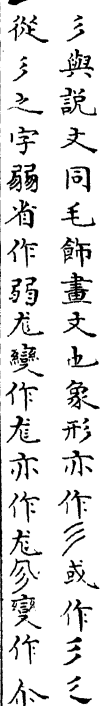 彡與說文同毛飾畫文也象形亦作彡或作彡凡
從彡之字弱省作弱尨變作尨亦作尨㐱變作尒